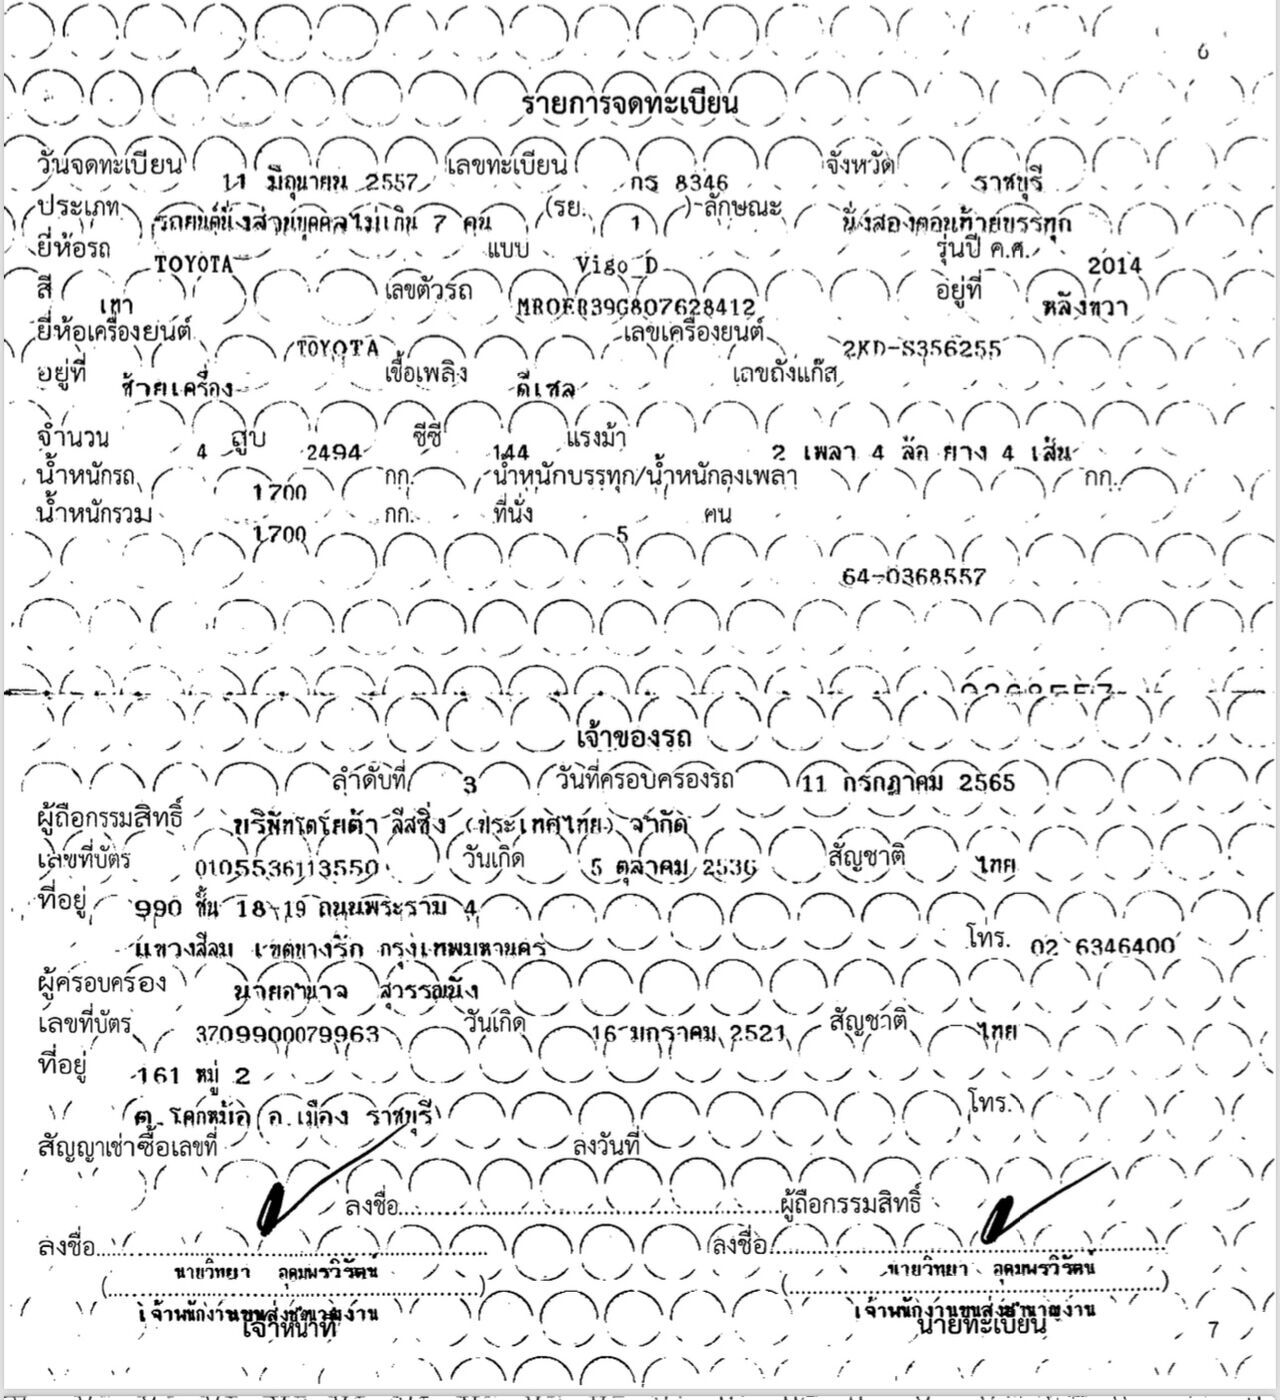 6
รายการจดทะเบียน
วันจดทะเบียน 11 มิถุนายน 2557 เลขทะเบียน กร 8346 จังหวัด ราชบุรี
ประเภท รถยนต์นั่งส่วนบุคคลไม่เกิน 7 คน (รย. 1 ) ลักษณะ นั่งสองตอนท้ายบรรทุก
ยี่ห้อรถ TOYOTA แบบ Vigo D รุ่นปี ค.ศ. 2014
สี เทา เลขตัวรถ MR0ER39G807628412 อยู่ที่ หลังขวา
ยี่ห้อเครื่องยนต์ TOYOTA เลขเครื่องยนต์ 2KD-S356255
อยู่ที่ ซ้ายเครื่อง เชื้อเพลิง ดีเซล เลขถังแก๊ส
จำนวน 4 สูบ 2494 ซีซี 144 แรงม้า 2 เพลา 4 ล้อ ยาง 4 เส้น
น้ำหนักรถ 1700 กก. น้ำหนักบรรทุก/น้ำหนักลงเพลา กก.
น้ำหนักรวม 1700 กก. ที่นั่ง 5 คน
64-0368557
เจ้าของรถ
ลำดับที่ 3 วันที่ครอบครองรถ 11 กรกฎาคม 2565
ผู้ถือกรรมสิทธิ์ บริษัทโตโยต้า ลีสซิ่ง (ประเทศไทย) จำกัด
เลขที่บัตร 0105536113550 วันเกิด 5 ตุลาคม 2536 สัญชาติ ไทย
ที่อยู่ 990 ชั้น 18-19 ถนนพระราม 4
แขวงสีลม เขตบางรัก กรุงเทพมหานคร โทร. 02 6346400
ผู้ครอบครอง นายอำนาจ สุวรรณนัง
เลขที่บัตร 3709900079963 วันเกิด 16 มกราคม 2521 สัญชาติ ไทย
ที่อยู่ 161 หมู่ 2
ต.โคกหม้อ อ.เมือง ราชบุรี โทร.
สัญญาเช่าซื้อเลขที่ ลงวันที่
ลงชื่อ ผู้ถือกรรมสิทธิ์
ลงชื่อ ลงชื่อ
นายวิทยา อุดมพรวิรัตน์ นายวิทยา อุดมพรวิรัตน์
( ) ( )
เจ้าพนักงานขนส่งชำนาญงาน เจ้าพนักงานขนส่งชำนาญงาน
เจ้าหน้าที่ นายทะเบียน 7